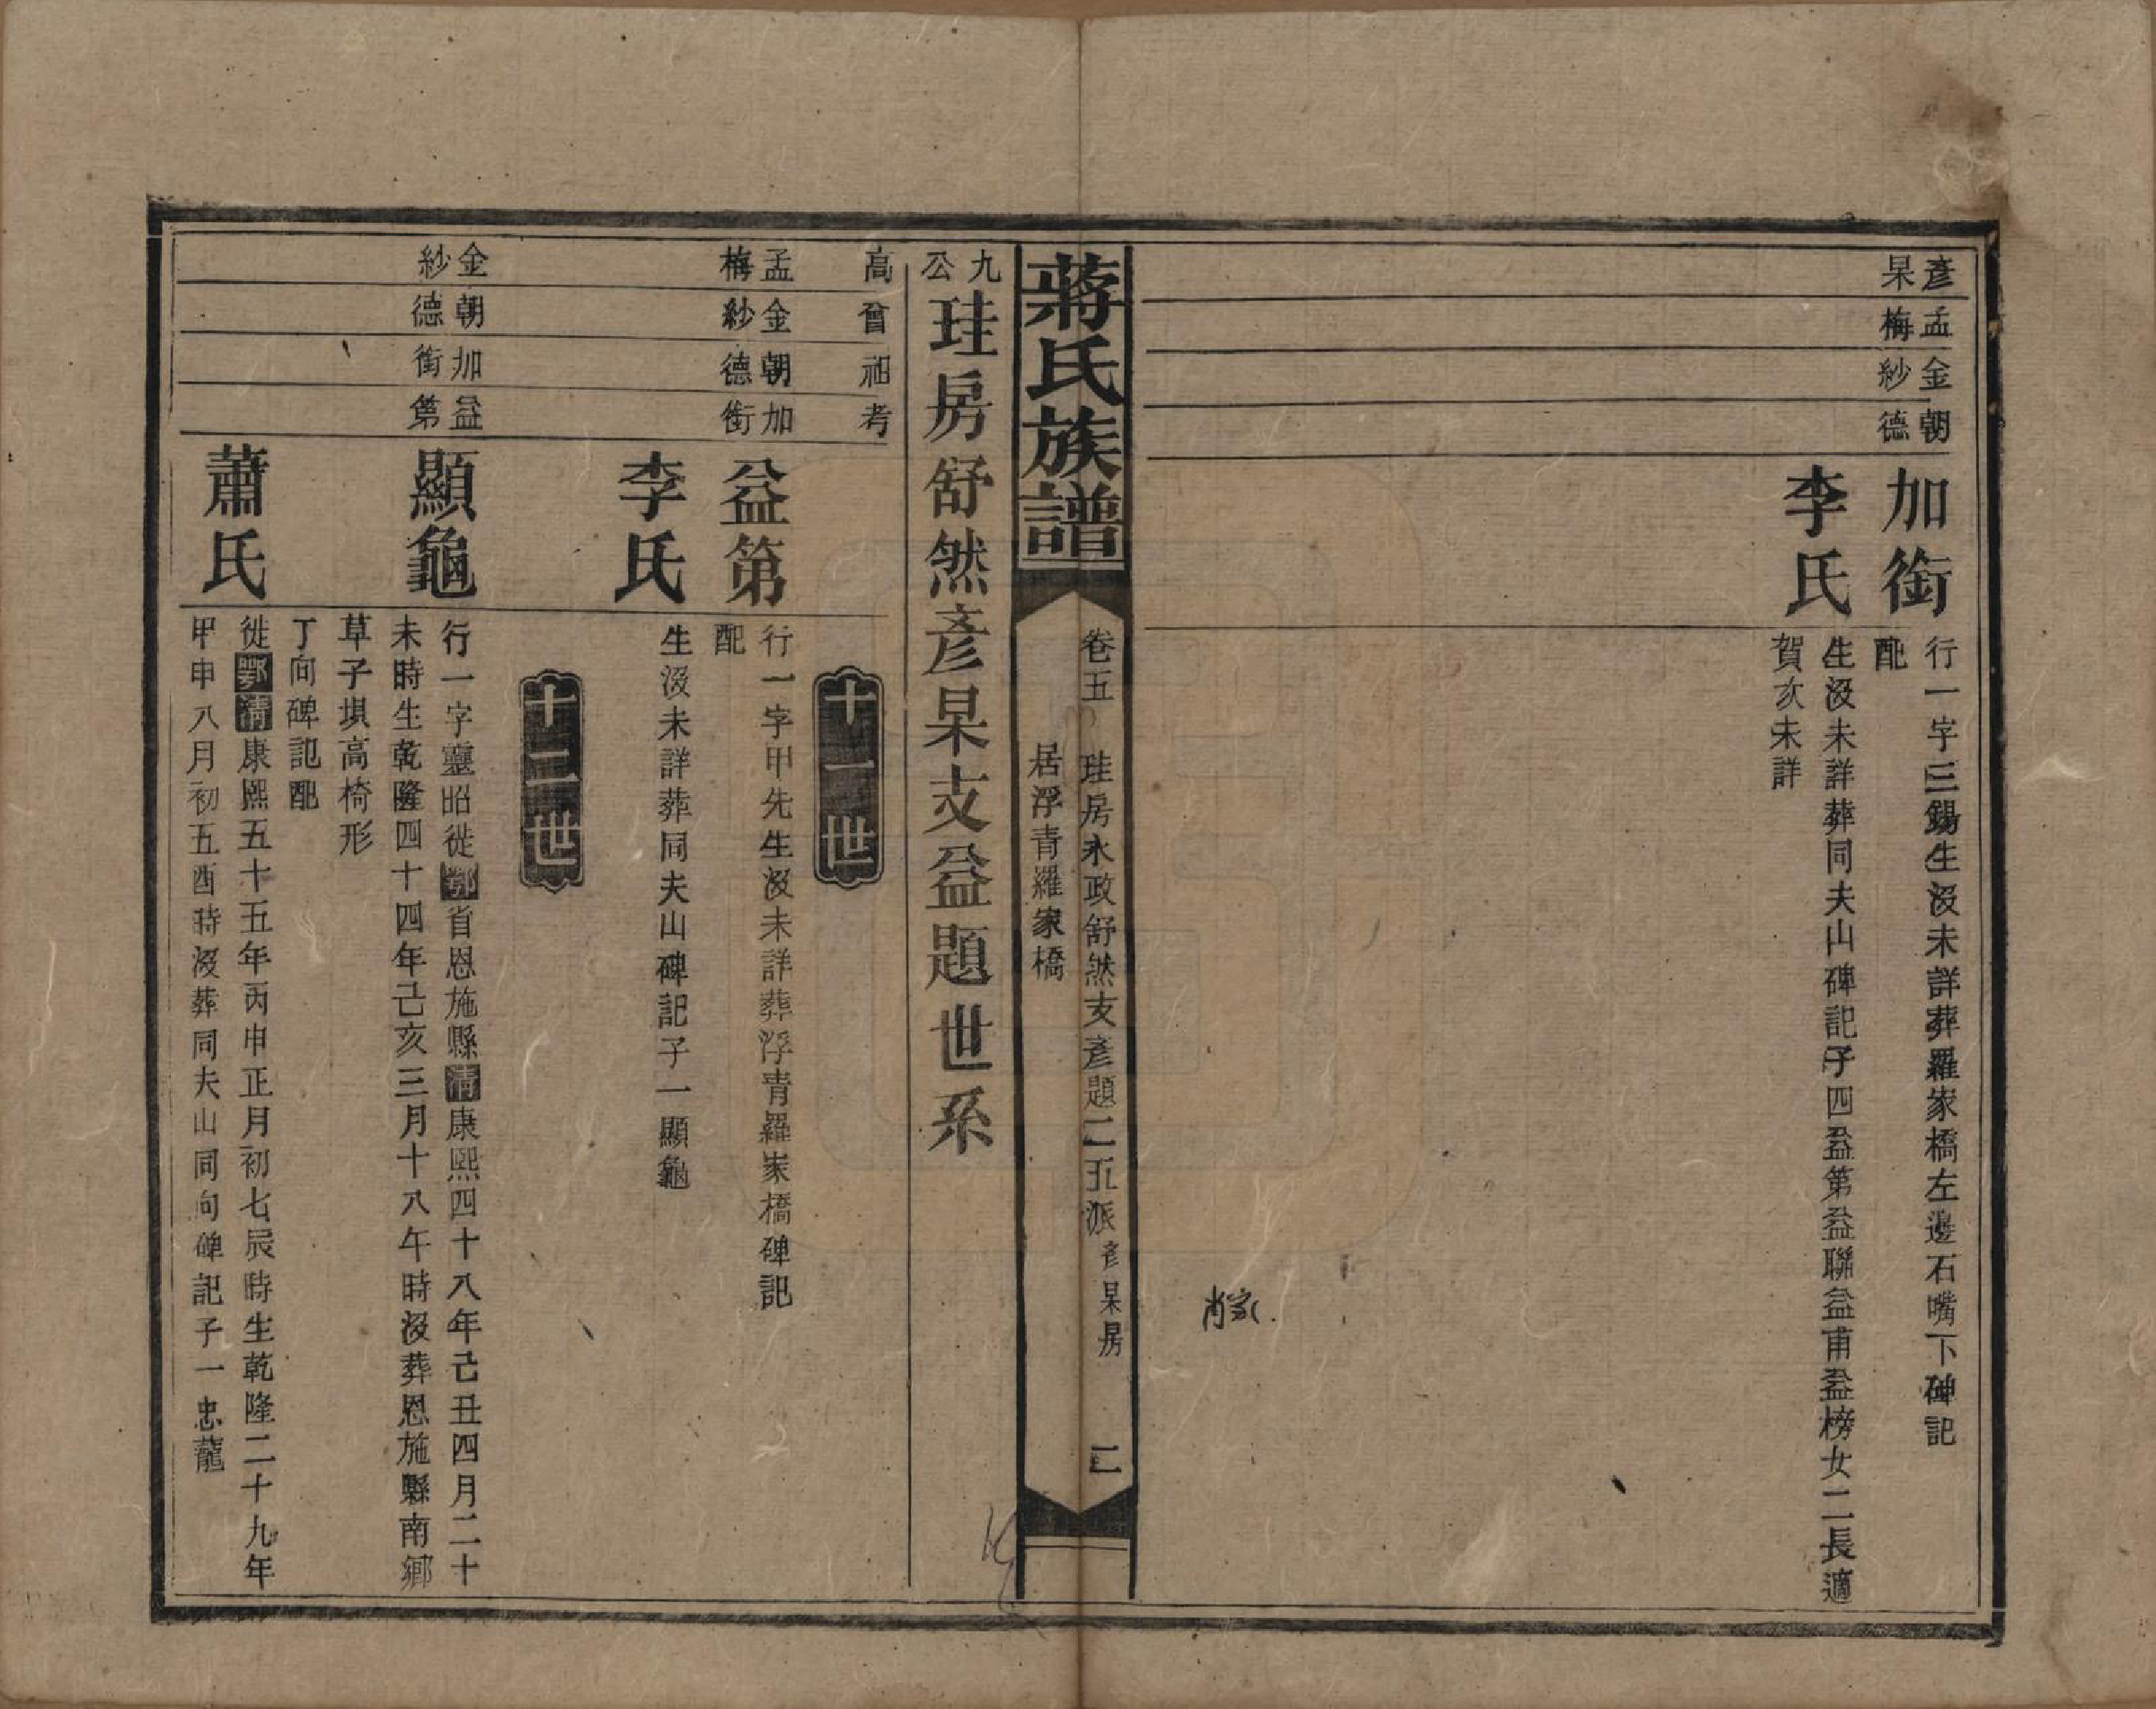 彥杲
孟梅
金紗
朝德
加銜
行一字三錫生沒未詳葬羅家橋左邊石嘴下碑記
配
李氏
生沒未詳葬同夫山碑記子四益第益聯益甫益榜女二長適
賀次未詳
蔣氏族譜
卷五
珪房永政舒然支彥題二五派彥杲房
居浮青羅家橋
二
九公珪房舒然彥杲支益題世系
高
曾
祖
考
十一世
孟梅
金紗
朝德
加銜
益第
行一字甲先生沒未詳葬浮青羅家橋碑記
配
李氏
生沒未詳葬同夫山碑記子一顯龜
十二世
金紗
朝德
加銜
益第
顯龜
行一字靈昭徙鄂省恩施縣清康熙四十八年己丑四月二十
未時生乾隆四十四年己亥三月十八午時沒葬恩施縣南鄉
草子垻高椅形
丁向碑記配
蕭氏
徙鄂清康熙五十五年丙申正月初七辰時生乾隆二十九年
甲申八月初五酉時沒葬同夫山同向碑記子一忠龍